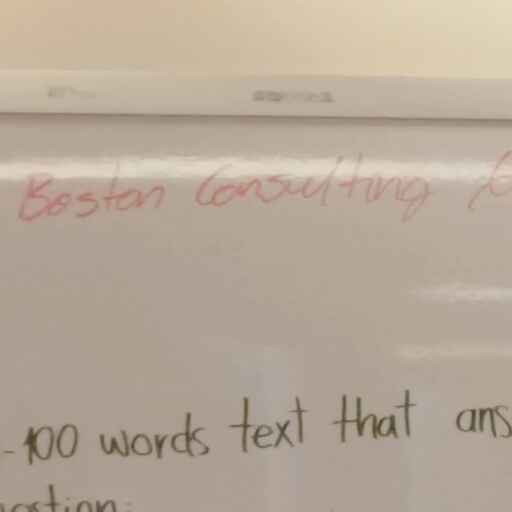 Boston Consulting
-100 words text that ans
estion: